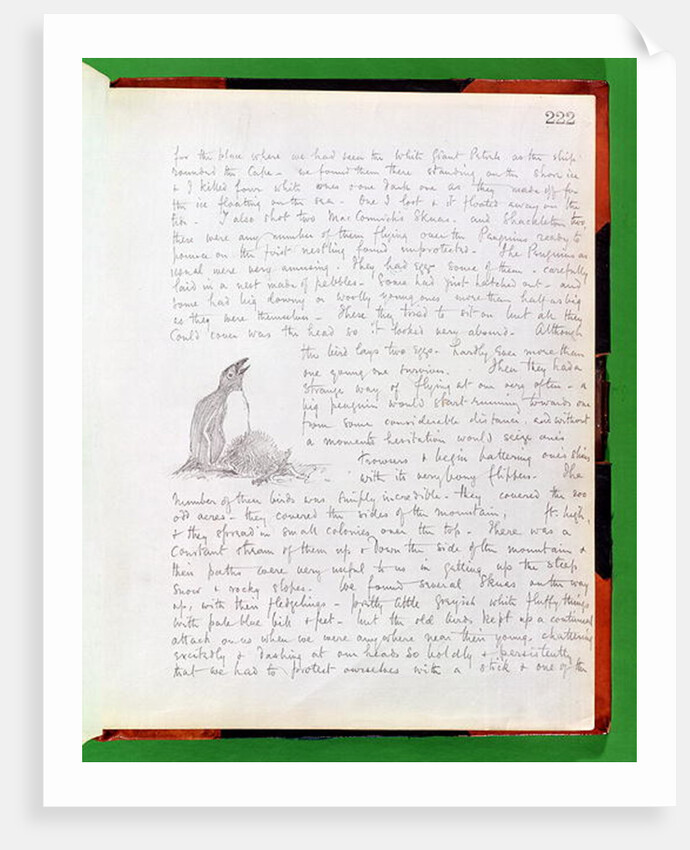 222
for the place where we had seen the White Giant Petrels as the ship
rounded the Cape - we found them there standing on the shore ice
& I killed four white ones & one dark one as they made off for
the ice floating on the sea. One I lost & it floated away on the
tide. I also shot two MacCormick's Skuas. and Shackleton two,
there were any number of them flying over the Penguins ready to
pounce on the first nestling found unprotected. The Penguins as
usual were very amusing. They had eggs some of them - carefully
laid in a nest made of pebbles - Some had just hatched out - and
some had big downy or woolly young ones more than half as big
as they were themselves - These they tried to sit on but all they
could cover was the head so it looked very absurd. Although
the bird lays two eggs - hardly ever more than
one young one survives. Then they had a
strange way of flying at one very often - a
big penguin would start running towards one
from some considerable distance and without
a moments hesitation would seize one's
trowsers & begin battering one's shins
with its very bony flippers. The
number of these birds was simply incredible - they covered the 200
odd acres - they covered the sides of the mountain, ft. high,
& they spread in small colonies over the top. There was a
constant stream of them up & down the side of the mountain &
their paths were very useful to us in getting up the steep
snow & rocky slopes. We found several Skuas on the way
up, with their fledgelings - pretty little greyish white fluffy things
with pale blue bill & feet - but the old birds kept up a continued
attack on us when we were anywhere near their young, chattering
excitedly & dashing at our heads so boldly & persistently
that we had to protect ourselves with a stick & one of the